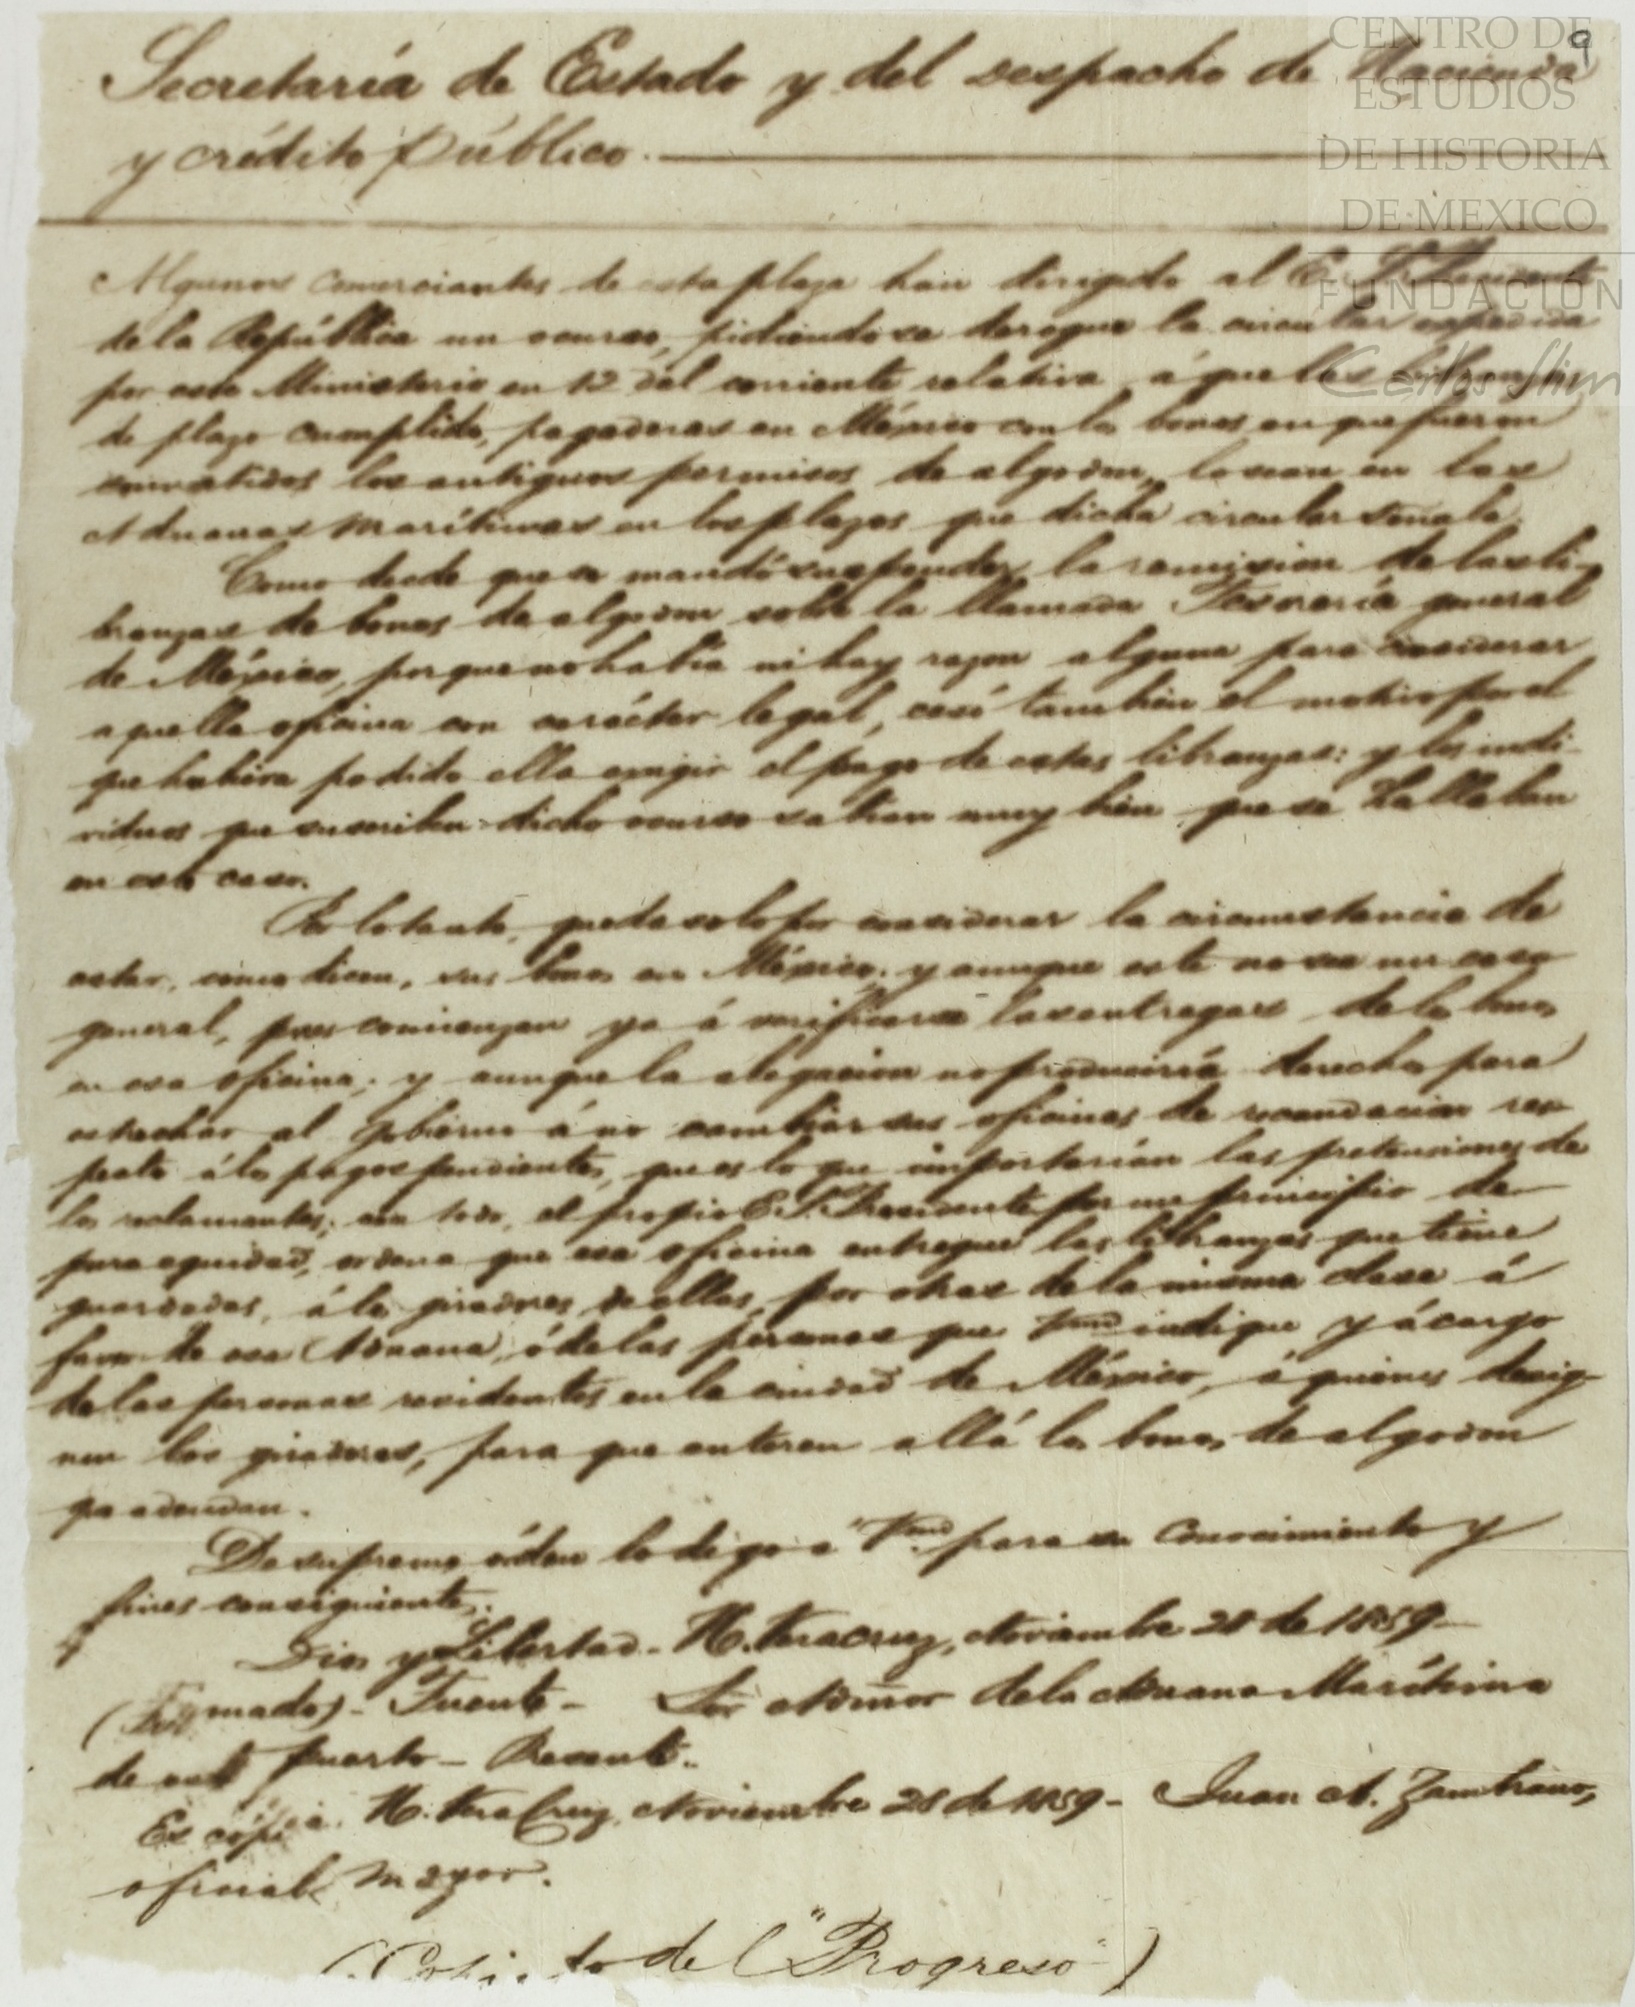 9
CENTRO DE
ESTUDIOS
DE HISTORIA
DE MEXICO
FUNDACIÓN
Carlos Slim
Secretaría de Estado y del despacho de Hacienda
y crédito público.
Algunos comerciantes de esta plaza han dirigido al E. S. Presidente
de la República un ocurso, pidiendo se derogue la circular expedida
por este Ministerio en 12 del corriente relativa á que las libranzas
de plazo cumplido, pagaderas en México con los bonos en que fueron
convertidos los antiguos permisos de algodon, lo sean en las
Aduanas marítimas en los plazos que dicha circular señala.
Como desde que se mandó suspender la remision de las li-
branzas de bonos de algodon sobre la llamada Tesorería general
de México, porque no habia ni hay razon alguna para considerar
aquella oficina con carácter legal, cesó tambien el motivo por el
que hubiera podido ella exigir el pago de estas libranzas: y los indi-
viduos que suscriben dicho ocurso sabian muy bien que se hallaban
en este caso.
Por lo tanto, queda solo por considerar la circunstancia de
estar, como dicen, sus bonos en México; y aunque este no sea un caso
general, pues comienzan ya á verificarse las entregas de los bonos
en esa oficina; y aunque la alegacion no produciria derechos para
estrechar al gobierno á no cambiar sus oficinas de recaudacion res-
pecto á los pagos pendientes, que es lo que importarían las pretensiones de
los reclamantes; con todo, el propio E. S. Presidente por un principio de
pura equidad, ordena que esa oficina entregue las libranzas que tiene
guardadas, á los giradores de ellas, por otras de la misma clase á
favor de esa Aduana, ó de las personas que Vmd indique y á cargo
de las personas residentes en la ciudad de México, á quienes desig-
nen los giradores, para que enteren allá los bonos de algodon
que adeudan.
De suprema órden lo digo á Vmd. para su conocimiento y
fines consiguientes.
Dios y Libertad. H. Veracruz, Noviembre 28 de 1859
(Firmado) - Fuente - Sor Admor de la Aduana Marítima
de este puerto - Presente.
Es cópia. H. Vera Cruz, Noviembre 28 de 1859 - Juan A. Zambrano,
oficial mayor.
de ("Progreso")